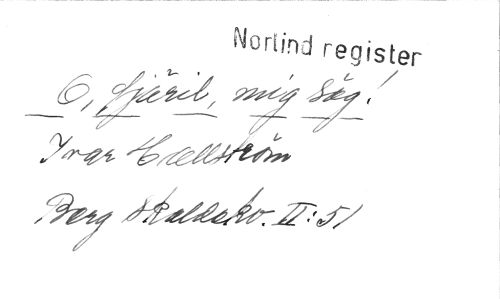 Norlind register
O, fjäril, mig säg!
Ivar Hallström
Berg Skaldskv. II:51